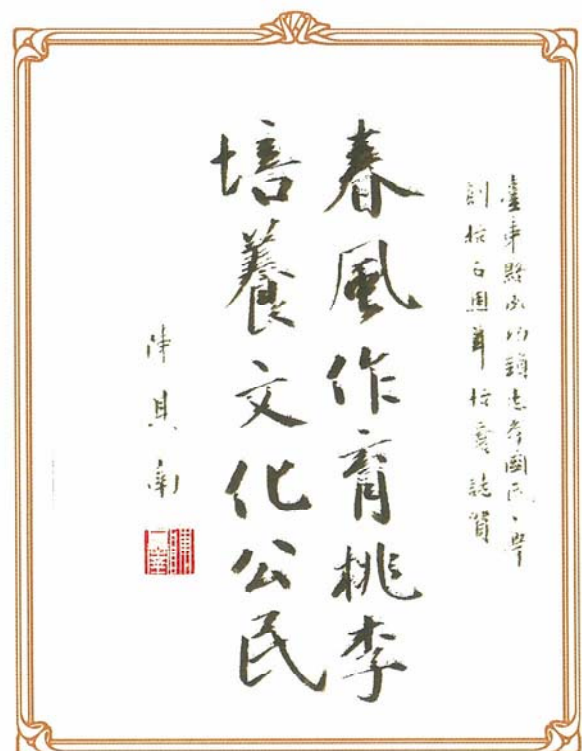 臺東縣成功鎮忠孝國民小學
創校百週年校慶誌賀
春風作育桃李
培養文化公民
陳其南